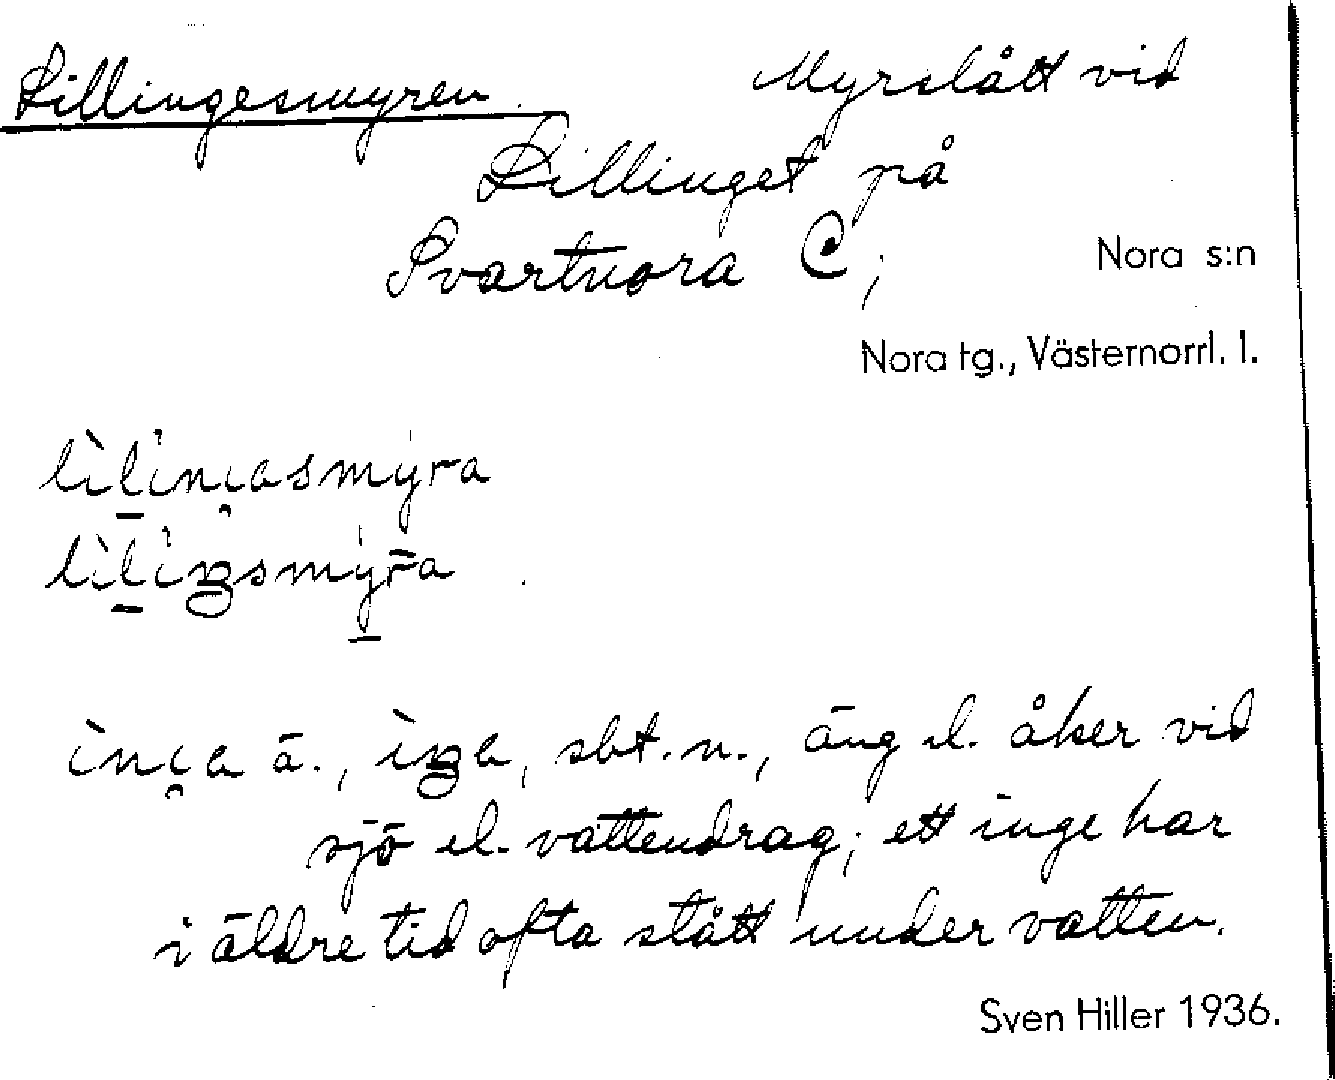 Lillingesmyren. Myrslått vid
Lillinget på
Svartnora C; Nora s:n
Nora tg., Västernorrl. l.
sbt. n., äng el. åker vid
sjö el. vattendrag; ett inge har
i äldre tid ofta stått under vatten.
Sven Hiller 1936.